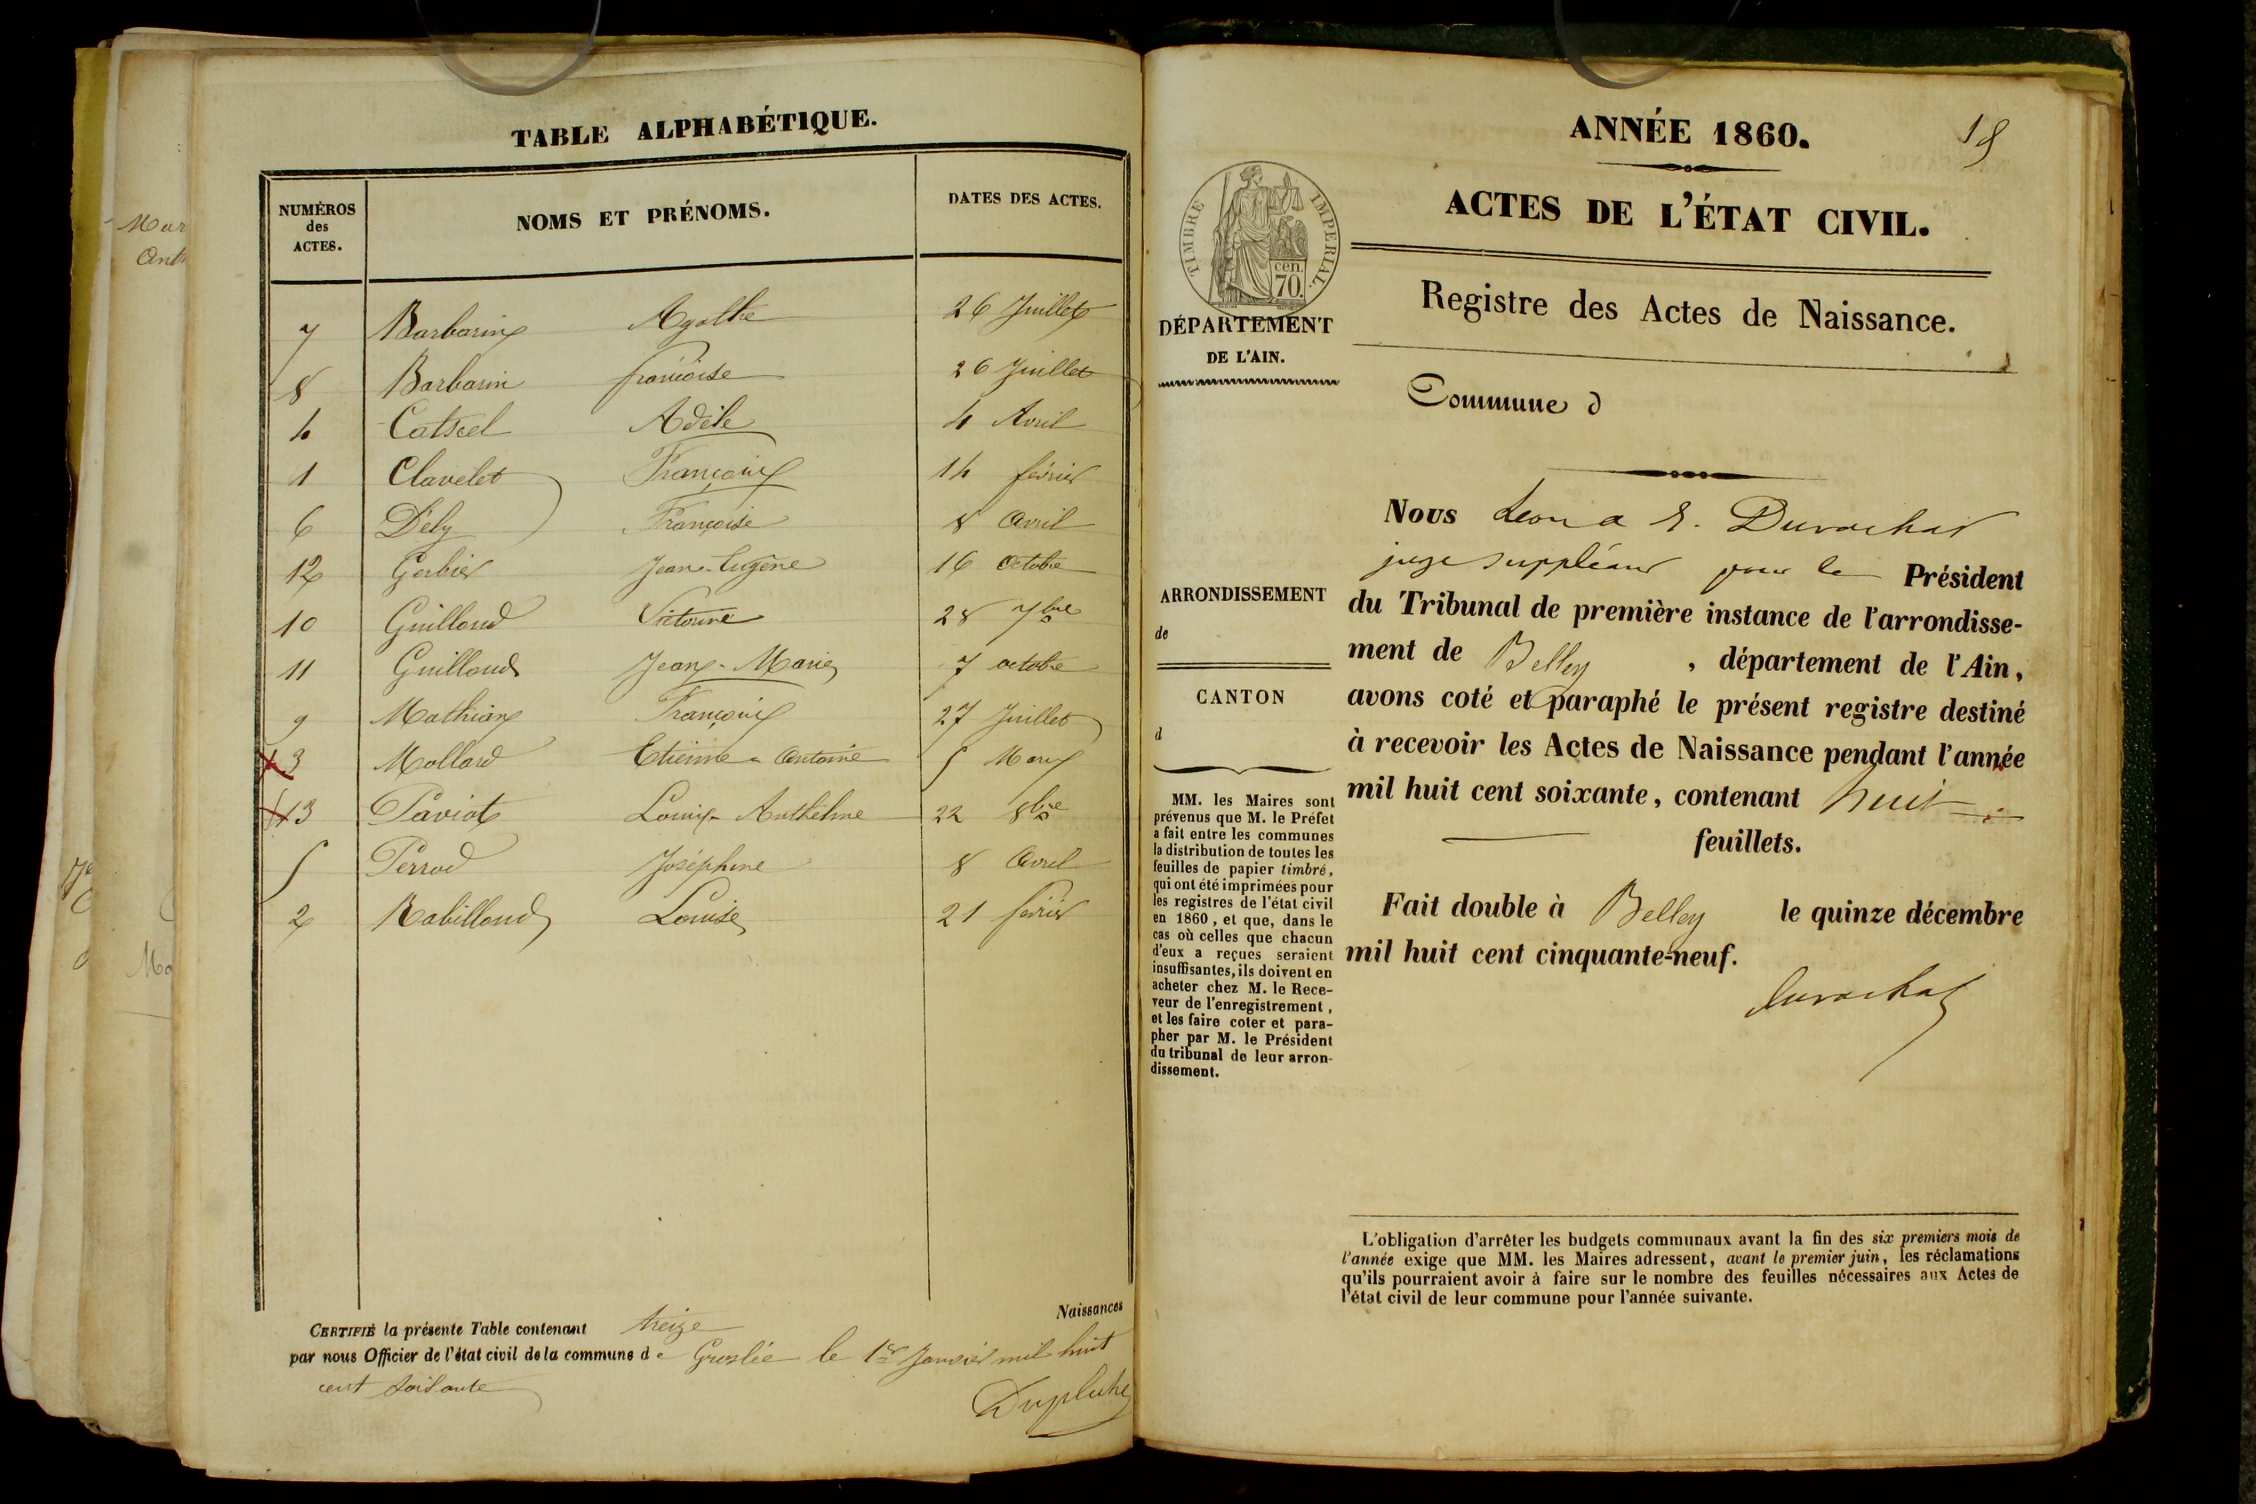 Mar
Ant
TABLE ALPHABÉTIQUE.
NUMÉROS des ACTES. NOMS ET PRÉNOMS. DATES DES ACTES.
7 Barbarin Agathe 26 Juillet
8 Barbarin francoise 26 Juillet
4 Catscel Adèle 4 Avril
1 Clavelet François 14 février
6 Dely Françoise 8 Avril
12 Gerbier Jean-Eugène 16 Octobre
10 Guilloud Victorine 28 7bre
11 Guilloud Jean-Marie 7 octobre
9 Mathian François 27 Juillet
3 Mollard Etienne-Antoine 5 Mars
13 Paviot Louis-Anthelme 22 8bre
5 Perrod Joséphine 8 Avril
2 Rabilloud Louise 21 février
Naissances
CERTIFIÉ la présente Table contenant treize
par nous Officier de l'état civil de la commune de Groslée le 1er Janvier mil huit
cent soixante
ANNÉE 1860.
ACTES DE L'ÉTAT CIVIL.
TIMBRE IMPÉRIAL.
cen.
70.
DÉPARTEMENT
DE L'AIN.
Registre des Actes de Naissance.
Commune d
Nous Leon E. Durochat
juge suppléant pour le Président
du Tribunal de première instance de l'arrondisse-
ment de Belley, département de l'Ain,
avons coté et paraphé le présent registre destiné
à recevoir les Actes de Naissance pendant l'année
mil huit cent soixante, contenant huit
feuillets.
Fait double à Belley le quinze décembre
mil huit cent cinquante-neuf.
Durochat
ARRONDISSEMENT
de
CANTON
d
MM. les Maires sont
prévenus que M. le Préfet
a fait entre les communes
la distribution de toutes les
feuilles de papier timbré,
qui ont été imprimées pour
les registres de l'état civil
en 1860, et que, dans le
cas où celles que chacun
d'eux a reçues seraient
insuffisantes, ils doivent en
acheter chez M. le Rece-
veur de l'enregistrement,
et les faire coter et para-
pher par M. le Président
du tribunal de leur arron-
dissement.
L'obligation d'arrêter les budgets communaux avant la fin des six premiers mois de
l'année exige que MM. les Maires adressent, avant le premier juin, les réclamations
qu'ils pourraient avoir à faire sur le nombre des feuilles nécessaires aux Actes de
l'état civil de leur commune pour l'année suivante.